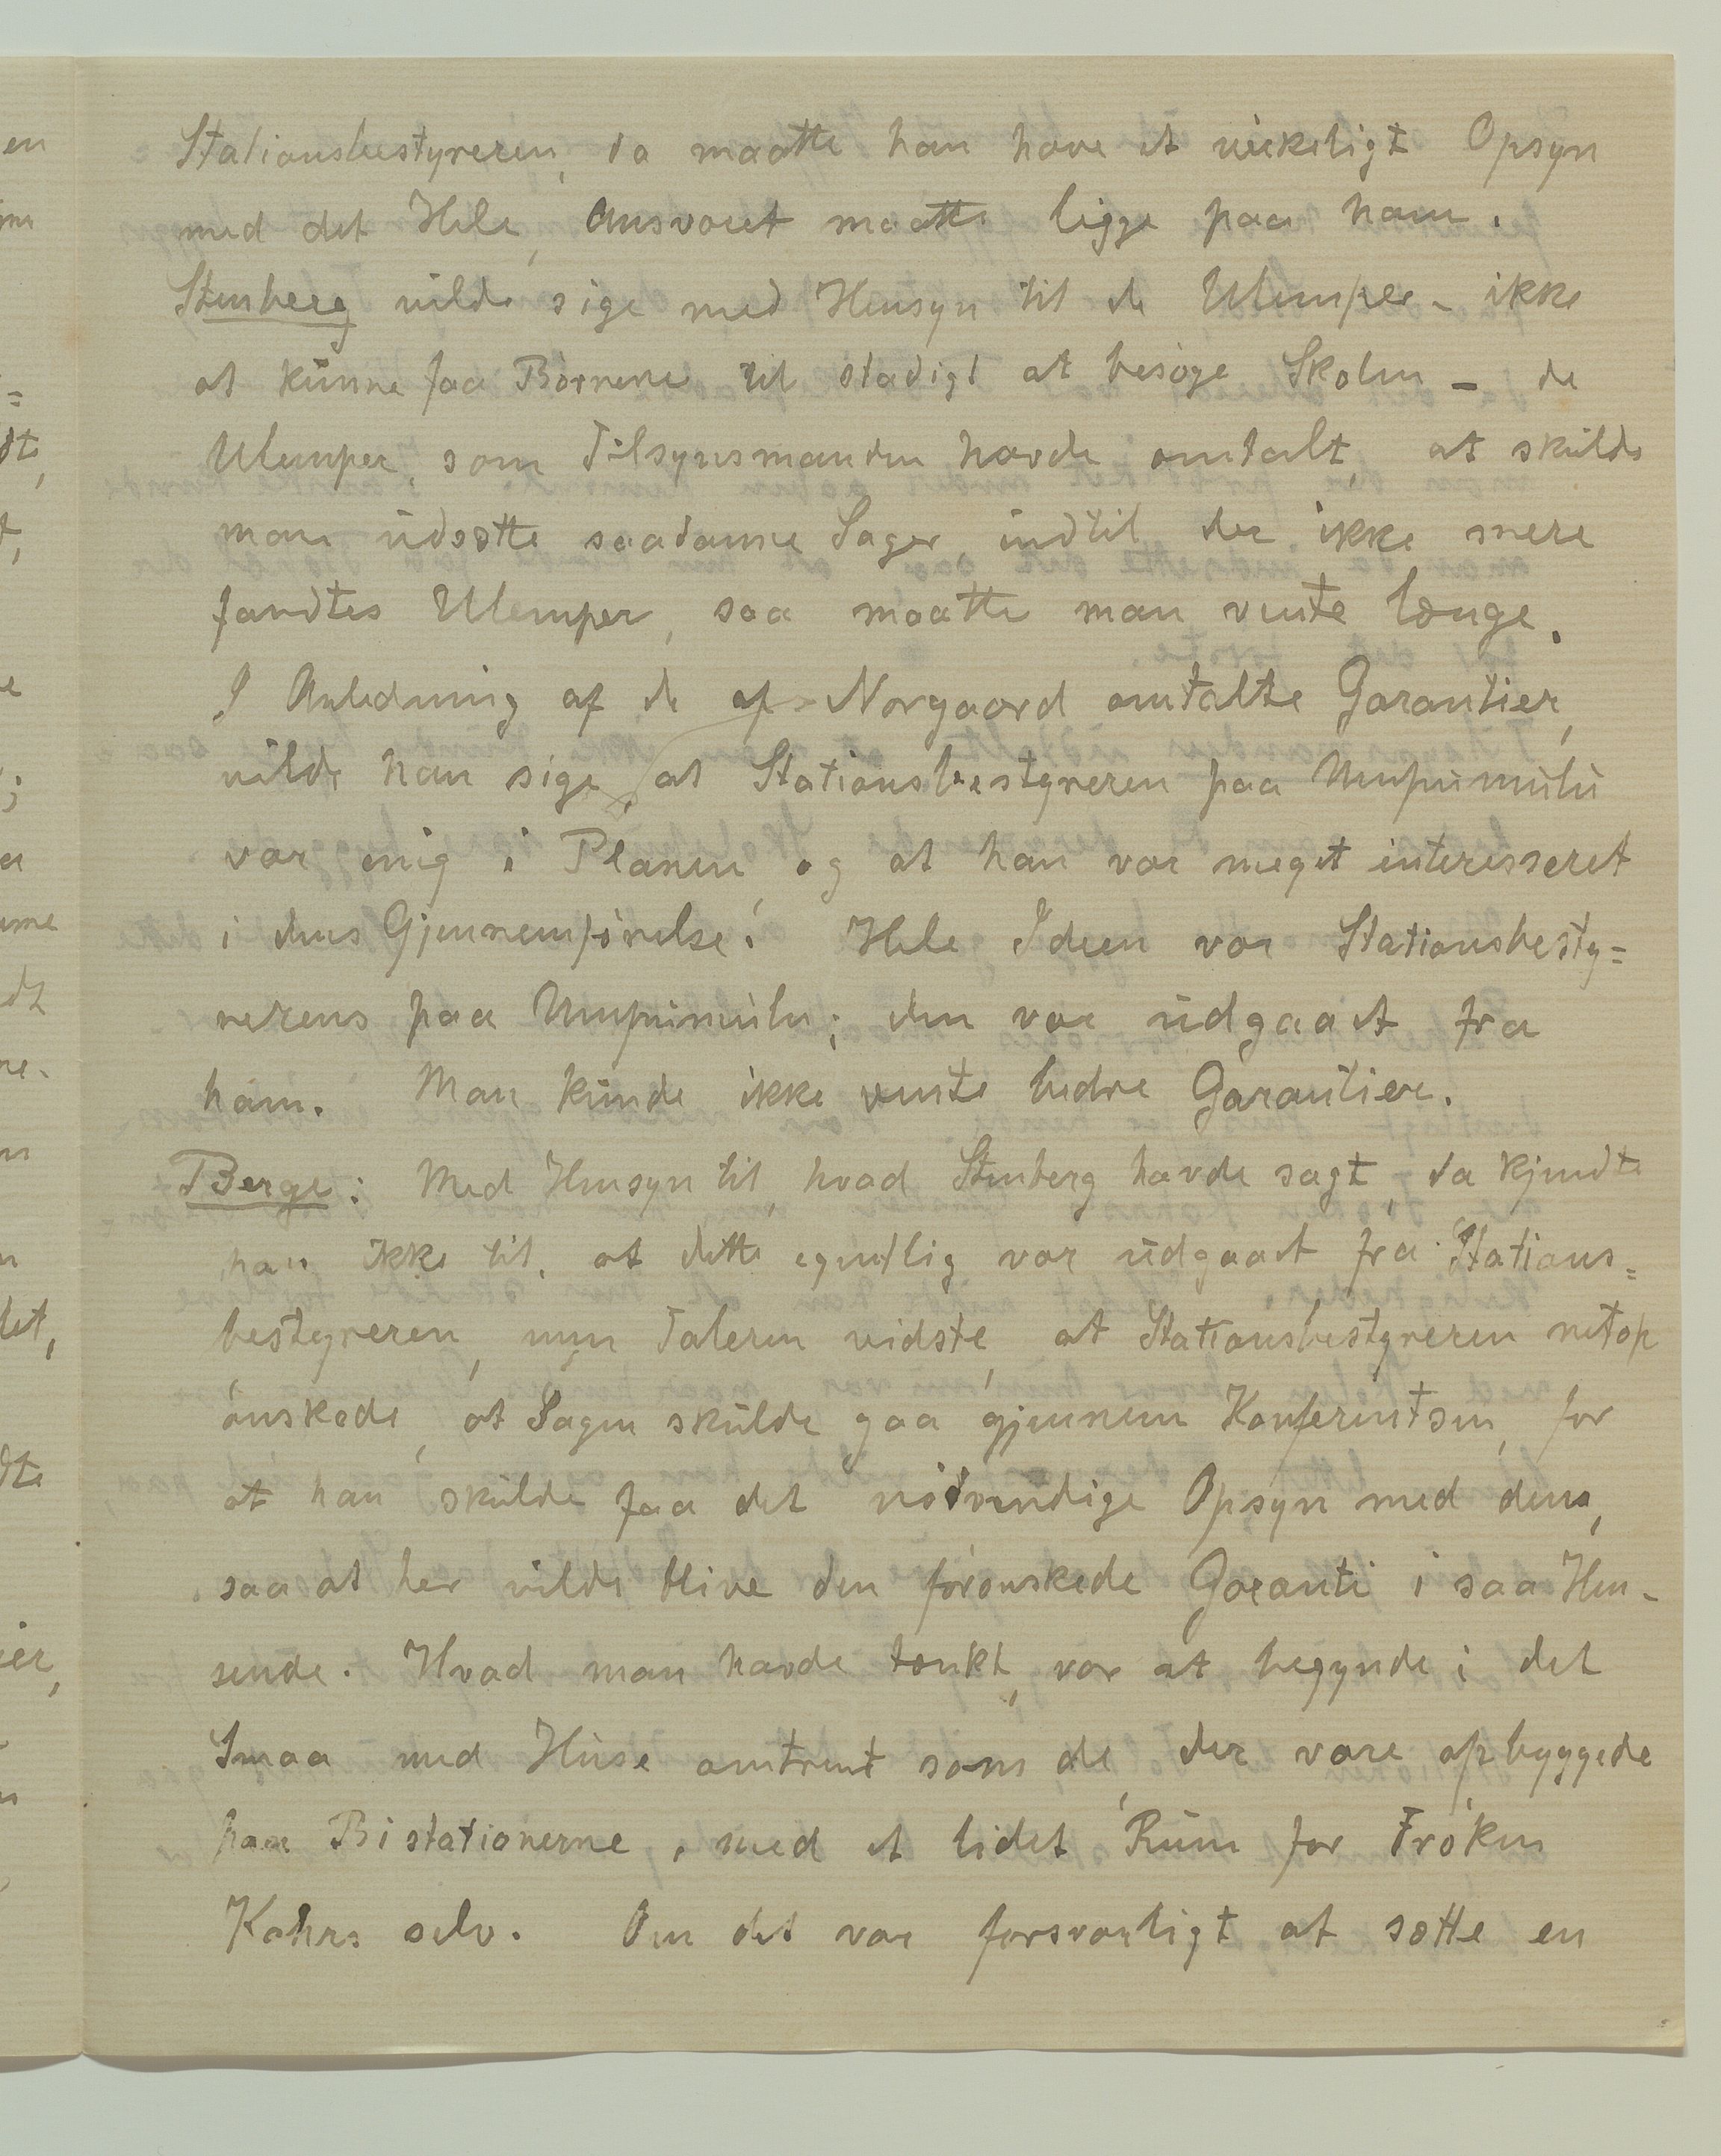 Stationsbestyreren, da maatte han have et virkeligt Opsyn
med det Hele, Ansvaret maatte ligge paa ham.
Stenberg vilde sige med Hensyn til de Ulemper - ikke
at kunne faa Børnene til stadigt at besøge Skolen - de
Ulemper, som Tilsynsmanden havde omtalt, at skulde
man udsætte saadanne Sager, indtil der ikke mere
fandtes Ulemper, saa maatte man vente længe.
I Anledning af de af Norgaard omtalte Garantier,
vilde han sige, at Stationsbestyreren paa Umpumulu
var enig i Planen og at han var meget interesseret
i dens Gjennemførelse! Hele Ideen var Stationsbesty=
rerens paa Umpumulu; den var udgaaet fra
ham. Man kunde ikke vente bedre Garantier.
Berge: Med Hensyn til, hvad Stenberg havde sagt, da kjendte
han ikke til, at dette egentlig var udgaaet fra Stations=
bestyreren, men Taleren vidste, at Stationsbestyreren netop
ønskede, at Sagen skulde gaa gjennem Konferentsen, for
at han skulde faa det nødvendige Opsyn med dens,
saa at her vilde blive den forønskede Garanti i saa Hen-
seende. Hvad man havde tænkt, var at begynde i det
Smaa med Huse omtrent som de, der vare opbyggede
paa Bistationerne, med et lidet Rum for Frøken
Kahrs selv. Om det var forsvarligt at sætte en